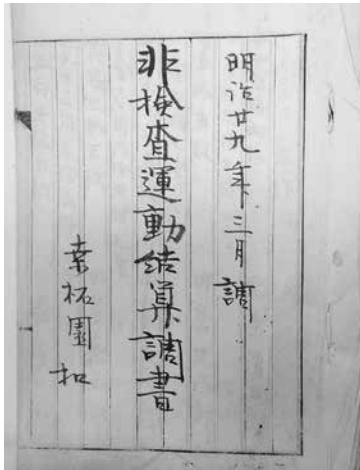 明治廿九年三月調
非検査運動結算調書
桑柘園扣